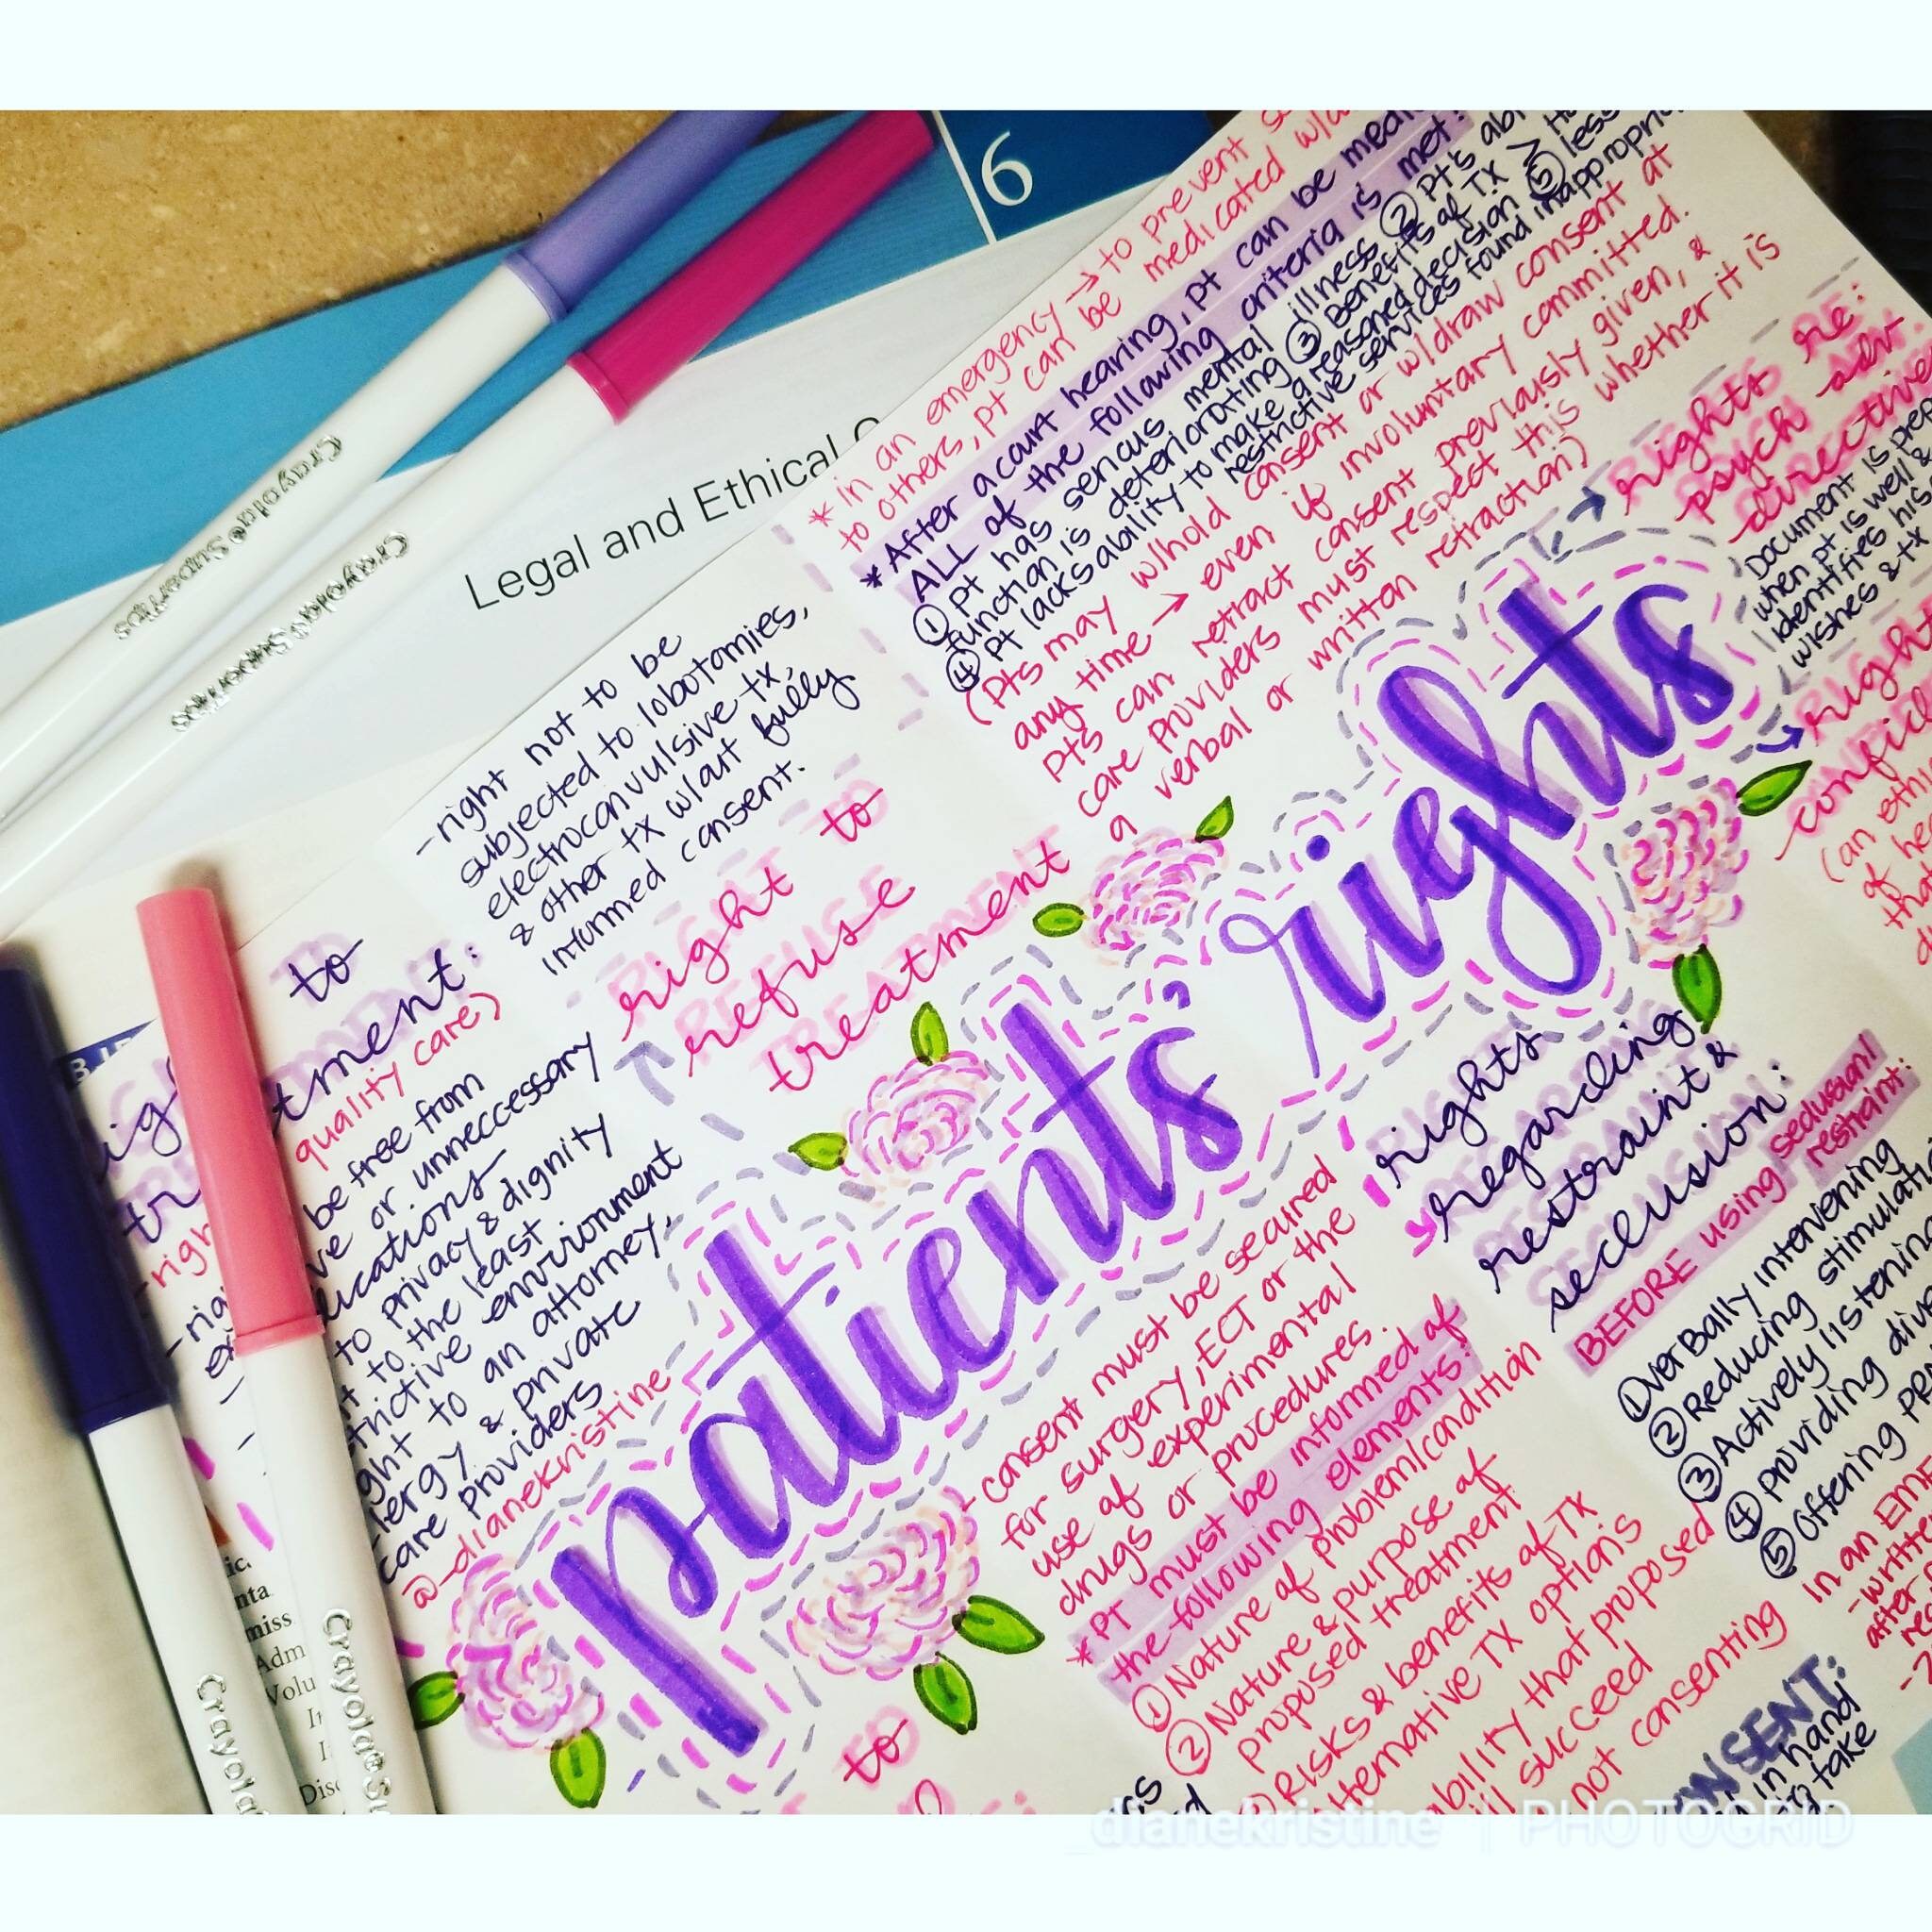 6
Legal and Ethical
Crayola® SuperTips
Crayola® SuperTips
-right not to be
subjected to lobotomies,
electroconvulsive tx,
& other tx w/out fully
informed consent.
* In an emergency → to prevent
to others, pt can be medicated w/out
* After a court hearing, pt can be
ALL of the following criteria is met:
① pt has serious mental illness ② pt's
function is deteriorating ③ Benefits of TX >
④ pt lacks ability to make a reasoned decision ⑤ less
restrictive services found inappropri
(pts may w/hold consent or w/draw consent at
any time → even if involuntary committed.
pts can retract consent previously given, &
care providers must respect this whether it is
a verbal or written retraction)
right to
refuse
treatment
to
tment:
quality care)
be free from
or unneccessary
to privacy & dignity
to the least
environment
to an attorney,
& private
care providers
@_dianekristine
patients rights
rights re:
psych adv.
directive
Document is prep
when pt is well &
identifies his
wishes & tx
right
(an
of
rights
regarding
restraint &
seclusion:
BEFORE using seclusion/
restraint:
① verbally intervening
② Reducing
③ Actively listening
④ providing
⑤ Offering
In an
-consent must be secured
for surgery, ECT or the
use of experimental
drugs or procedures.
* PT must be informed of
the following elements:
① Nature of problem/condition
② Nature & purpose of
proposed treatment
Risks & benefits of TX
TX options
that proposed
succeed
not consenting
to
in hand
take
Crayola
Crayola
Adm
_dianekristine | PHOTOGRID